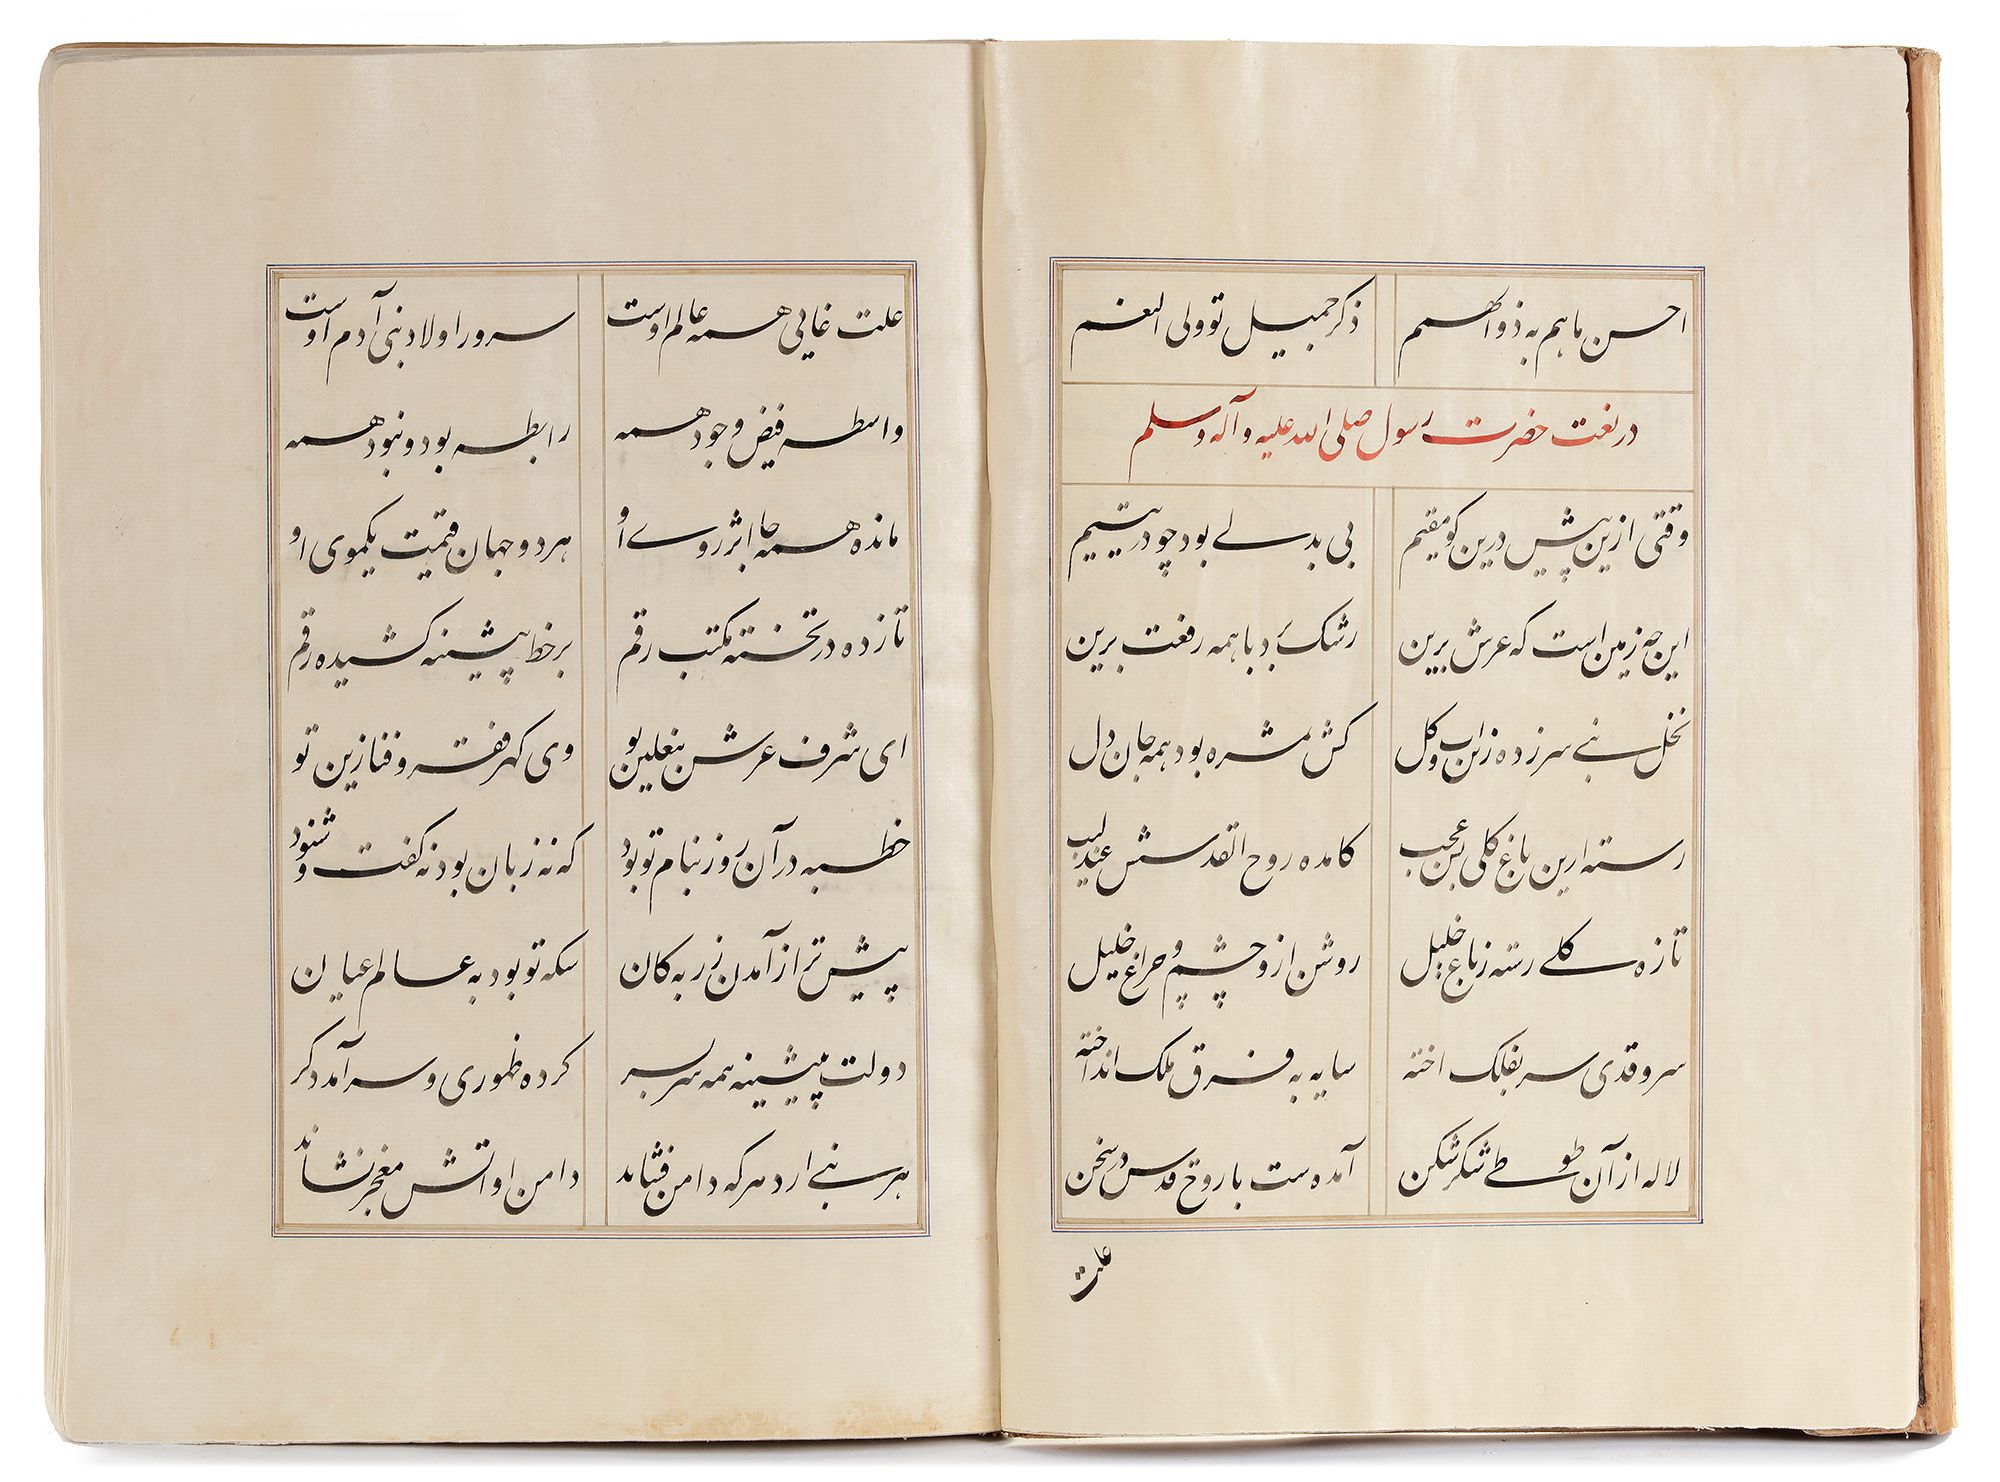 احسن ما هم به ذوالهمم ذکر جمیل تو ولی النعم
در نعت حضرت رسول صلی الله علیه و آله وسلم
وقتی ازین پیش درین کو مقیم بی بدلے بود چو در یتیم
این چه زمین است که عرش برین رشک برد با همه رفعت برین
نخل بنے سر زده زاب و کل کش ثمره بود همه جان و دل
رسته ازین باغ کلی بس عجب کامده روح القدسش عندلیب
تازه کلے رسته ز باغ خلیل روشن ازو چشم و چراغ خلیل
سرو قدی سر بفلک اخته سایه به فرق ملک انداخته
لاله از آن طوطے شکر شکن آمده ست با روح قدس در سخن
علت
علت غایی همه عالم اوست سرور اولاد بنی آدم اوست
واسطه فیض وجود همه رابطه بود و نبود همه
مانده همه جا اثر روے او هر دو جهان قیمت یکموی او
تا زده در تخته مکتب رقم بر خط پیشینه کشیده رقم
ای شرف عرش ز نعلین تو وی کهر فقر و فنا زین تو
خطبه در آن روز بنام تو بود که نه زبان بود نه کفت و شنود
پیش تر از آمدن زر به کان سکه تو بود به عالم عیان
دولت پیشینه همه سر بسر کرده ظهوری و سر آمد دکر
هر بنے ارد هر که دامن فشاند دامن او اتش مغجر نشاند